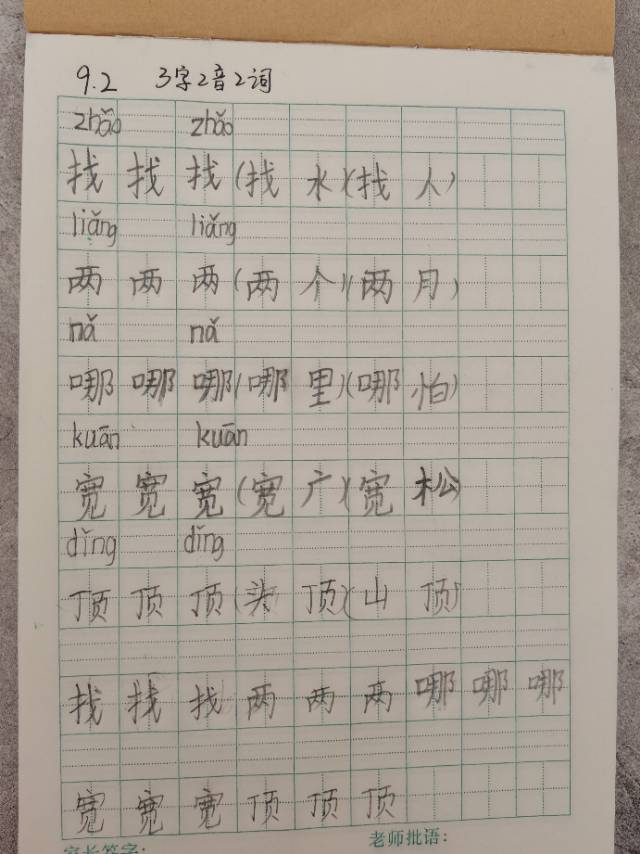 9.2 3字2音2词
zhǎo zhǎo
找 找 找(找 水)(找 人)
liǎng liǎng
两 两 两(两 个)(两 月)
nǎ nǎ
哪 哪 哪(哪 里)(哪 怕)
kuān kuān
宽 宽 宽(宽 广)(宽 松)
dǐng dǐng
顶 顶 顶(头 顶)(山 顶)
找 找 找 两 两 两 哪 哪 哪
宽 宽 宽 顶 顶 顶
家长签字: 老师批语: